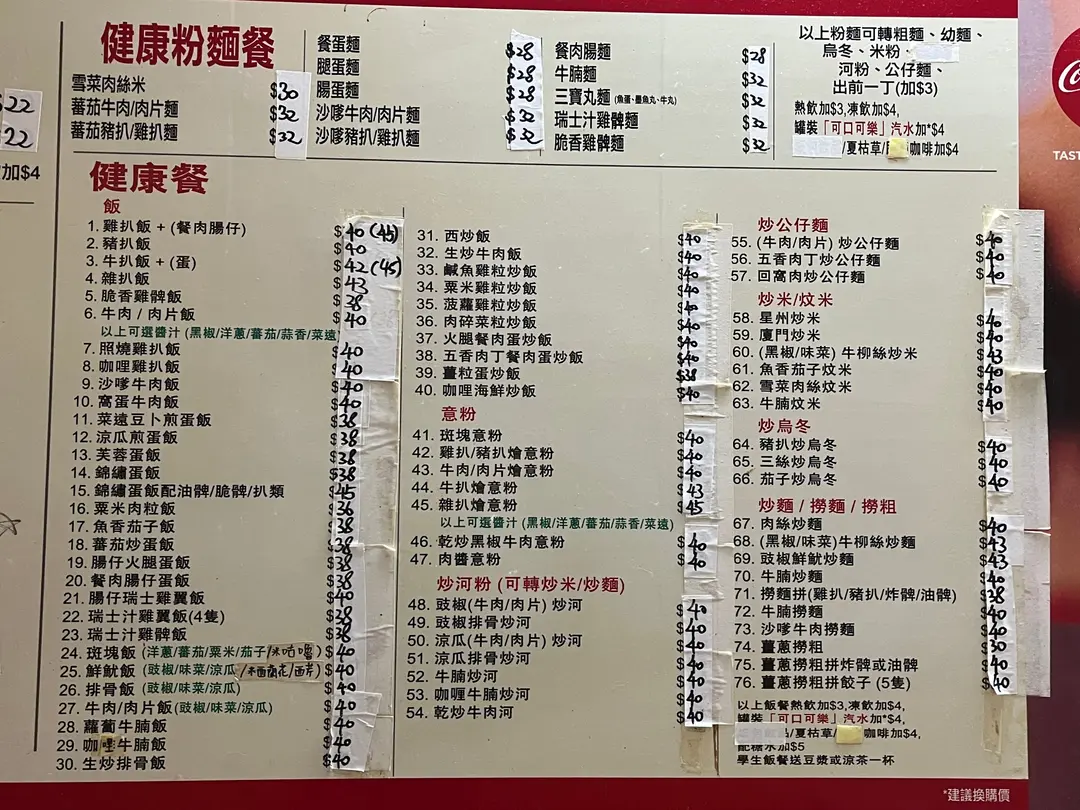 健康粉麵餐
雪菜肉絲米 $30
蕃茄牛肉/肉片麵 $32
蕃茄豬扒/雞扒麵 $32
餐蛋麵 $28
腿蛋麵 $28
腸蛋麵 $28
沙嗲牛肉/肉片麵 $32
沙嗲豬扒/雞扒麵 $32
餐肉腸麵 $28
牛腩麵 $32
三寶丸麵 (魚蛋、墨魚丸、牛丸) $32
瑞士汁雞髀麵 $32
脆香雞髀麵 $32
以上粉麵可轉粗麵、幼麵、
烏冬、米粉、
河粉、公仔麵、
出前一丁(加$3)
熱飲加$3,凍飲加$4,
罐裝「可口可樂」汽水加*$4
/夏枯草/ 咖啡加$4
$22
22
加$4
TAST
健康餐
飯
1. 雞扒飯 + (餐肉腸仔) $40 (45)
2. 豬扒飯 $40
3. 牛扒飯 + (蛋) $42 (45)
4. 雜扒飯 $43
5. 脆香雞髀飯 $38
6. 牛肉 / 肉片飯 $40
以上可選醬汁 (黑椒/洋蔥/蕃茄/蒜香/菜遠
7. 照燒雞扒飯 $40
8. 咖哩雞扒飯 $40
9. 沙嗲牛肉飯 $40
10. 窩蛋牛肉飯 $40
11. 菜遠豆卜煎蛋飯 $38
12. 涼瓜煎蛋飯 $38
13. 芙蓉蛋飯 $38
14. 錦繡蛋飯 $38
15. 錦繡蛋飯配油髀/脆髀/扒類 $45
16. 粟米肉粒飯 $36
17. 魚香茄子飯 $38
18. 蕃茄炒蛋飯 $38
19. 腸仔火腿蛋飯 $38
20. 餐肉腸仔蛋飯 $38
21. 腸仔瑞士雞翼飯 $40
22. 瑞士汁雞翼飯(4隻) $38
23. 瑞士汁雞髀飯 $38
24. 斑塊飯 (洋蔥/蕃茄/粟米/茄子/咪咕嚕) $40
25. 鮮魷飯 (豉椒/味菜/涼瓜/西蘭花/西芹) $40
26. 排骨飯 (豉椒/味菜/涼瓜) $40
27. 牛肉/肉片飯(豉椒/味菜/涼瓜) $40
28. 蘿蔔牛腩飯 $40
29. 咖哩牛腩飯 $40
30. 生炒排骨飯 $40
31. 西炒飯 $40
32. 生炒牛肉飯 $40
33. 鹹魚雞粒炒飯 $40
34. 粟米雞粒炒飯 $40
35. 菠蘿雞粒炒飯 $40
36. 肉碎菜粒炒飯 $40
37. 火腿餐肉蛋炒飯 $40
38. 五香肉丁餐肉蛋炒飯 $40
39. 薑粒蛋炒飯 $38
40. 咖哩海鮮炒飯 $40
意粉
41. 斑塊意粉 $40
42. 雞扒/豬扒燴意粉 $40
43. 牛肉/肉片燴意粉 $40
44. 牛扒燴意粉 $43
45. 雜扒燴意粉 $45
以上可選醬汁 (黑椒/洋蔥/蕃茄/蒜香/菜遠)
46. 乾炒黑椒牛肉意粉 $40
47. 肉醬意粉 $40
炒河粉 (可轉炒米/炒麵)
48. 豉椒(牛肉/肉片) 炒河 $40
49. 豉椒排骨炒河 $40
50. 涼瓜(牛肉/肉片) 炒河 $40
51. 涼瓜排骨炒河 $40
52. 牛腩炒河 $40
53. 咖喱牛腩炒河 $40
54. 乾炒牛肉河 $40
炒公仔麵
55. (牛肉/肉片) 炒公仔麵 $40
56. 五香肉丁炒公仔麵 $40
57. 回窩肉炒公仔麵 $40
炒米/炆米
58. 星州炒米 $40
59. 廈門炒米 $40
60. (黑椒/味菜) 牛柳絲炒米 $43
61. 魚香茄子炆米 $40
62. 雪菜肉絲炆米 $40
63. 牛腩炆米 $40
炒烏冬
64. 豬扒炒烏冬 $40
65. 三絲炒烏冬 $40
66. 茄子炒烏冬 $40
炒麵 / 撈麵 / 撈粗
67. 肉絲炒麵 $40
68. (黑椒/味菜)牛柳絲炒麵 $43
69. 豉椒鮮魷炒麵 $43
70. 牛腩炒麵 $40
71. 撈麵拼(雞扒/豬扒/炸髀/油髀) $38
72. 牛腩撈麵 $40
73. 沙嗲牛肉撈麵 $40
74. 薑蔥撈粗 $30
75. 薑蔥撈粗拼炸髀或油髀 $40
76. 薑蔥撈粗拼餃子 (5隻) $40
以上飯餐熱飲加$3,凍飲加$4,
罐裝「可口可樂」汽水加*$4,
/夏枯草/ 咖啡加$4,
配糖水加$5
學生飯餐送豆漿或涼茶一杯
*建議換購價